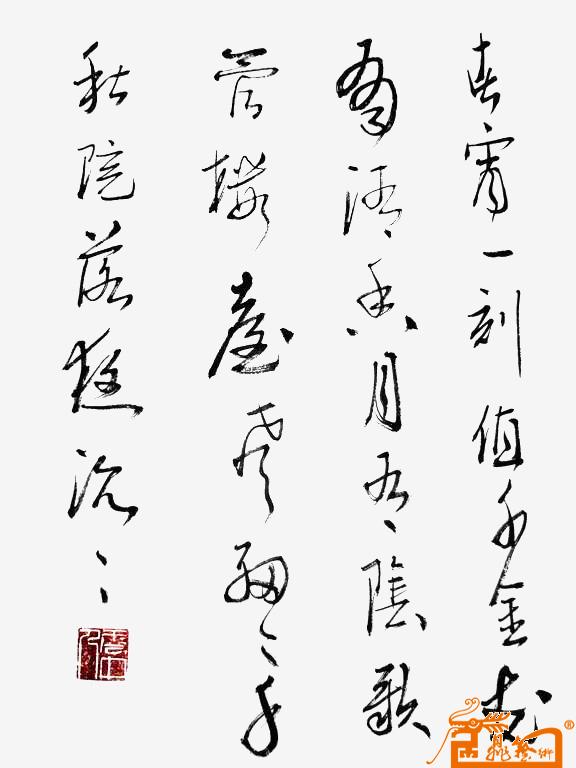 春宵一刻值千金花
有清香月有陰歌
管樓臺聲細〻千
秋院落夜沉〻